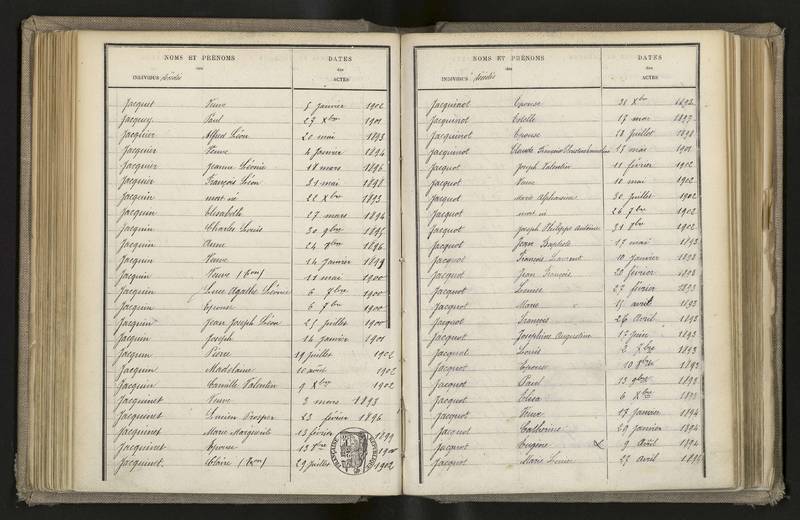 NOMS ET PRÉNOMS DATES
des des
INDIVIDUS décédés ACTES
Jacquet Veuve 5 Janvier 1902
Jacquey Paul 27 Xbre 1901
Jacquier Alfred Léon 20 mai 1893
Jacquier Veuve 4 Janvier 1894
Jacquier Jeanne Léonie 18 mars 1896
Jacquier François Léon 31 mai 1898
Jacquin mort né 22 Xbre 1893
Jacquin Elisabeth 27 mars 1894
Jacquin Charles Louis 30 9bre 1895
Jacquin Anne 24 1896
Jacquin Veuve 14 Janvier 1899
Jacquin Veuve 11 mai 1900
Jacquin Luce Agathe Léonie 6 7bre 1900
Jacquin Epouse 6 7bre 1900
Jacquin Jean Joseph Léon 25 Juillet 1900
Jacquin Joseph 14 janvier 1901
Jacquin Pierre 19 Juillet 1902
Jacquin Madelaine 10 août 1902
Jacquin Camille Valentin 9 Xbre 1902
Jacquinet Veuve 3 mars 1893
Jacquinet Lucien Prosper 23 février 1896
Jacquinet Marie Marguerite 13 février 1899
Jacquinet Epouse 13 1900
Jacquinet Claire 29 Juillet 1902
NOMS ET PRÉNOMS DATES
des des
INDIVIDUS décédés ACTES
Jacquinot Epouse Xbre 1893
Jacquinot 17 mai 1897
Jacquinot Epouse 18 Juillet 1898
Jacquinot Claude François 15 mai 1901
Jacquot Joseph Valentin 11 février 1902
Jacquot Veuve 10 mai 1902
Jacquot Marie Alphonsine 30 Juillet 1902
Jacquot mort né 26 7bre 1902
Jacquot Joseph Philippe Antoine 31 1902
Jacquot Jean Baptiste 17 mai 1893
Jacquot François Laurent 10 Janvier 1893
Jacquot Jean François 20 février 1893
Jacquot Louise 27 février 1893
Jacquot Marie 15 avril 1893
Jacquot François 26 Avril 1893
Jacquot Joséphine Augustine 17 Juin 1893
Jacquot Louis 2 1893
Jacquot Epouse 10 8bre 1893
Jacquot Paul 13 9bre 1893
Jacquot Elisa 6 Xbre 1893
Jacquot Veuve 17 Janvier 1894
Jacquot Catherine 29 Janvier 1894
Jacquot Eugène 9 Avril 1894
Jacquot Marie Louise 27 Avril 1894